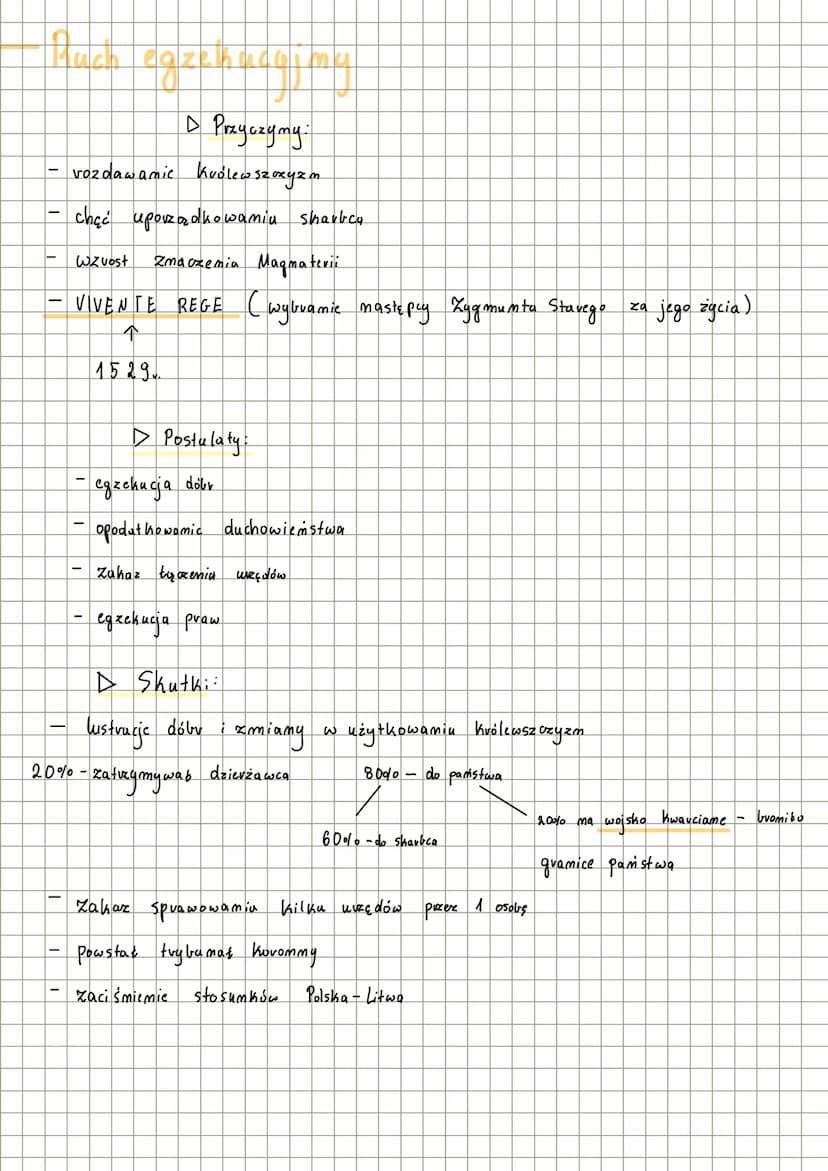 – Ruch egzekucyjny
▷ Przyczyny:
- rozdawanie królewszczyzn
- chęć uporządkowania skarbca
- wzrost znaczenia Magnaterii
- VIVENTE REGE (wybranie następcy Zygmunta Starego za jego życia)
↑
1529r.
▷ Postulaty:
- egzekucja dóbr
- opodatkowanie duchowieństwa
- zakaz łączenia urzędów
- egzekucja praw
▷ Skutki:
- lustracje dóbr i zmiany w użytkowaniu królewszczyzn
20% - zatrzymywał dzierżawca 80% - do państwa
20% na wojsko kwarciane - broniło
60% - do skarbca
granice państwa
- zakaz sprawowania kilku urzędów przez 1 osobę
- powstał trybunał koronny
- zaciśnienie stosunków Polska - Litwa